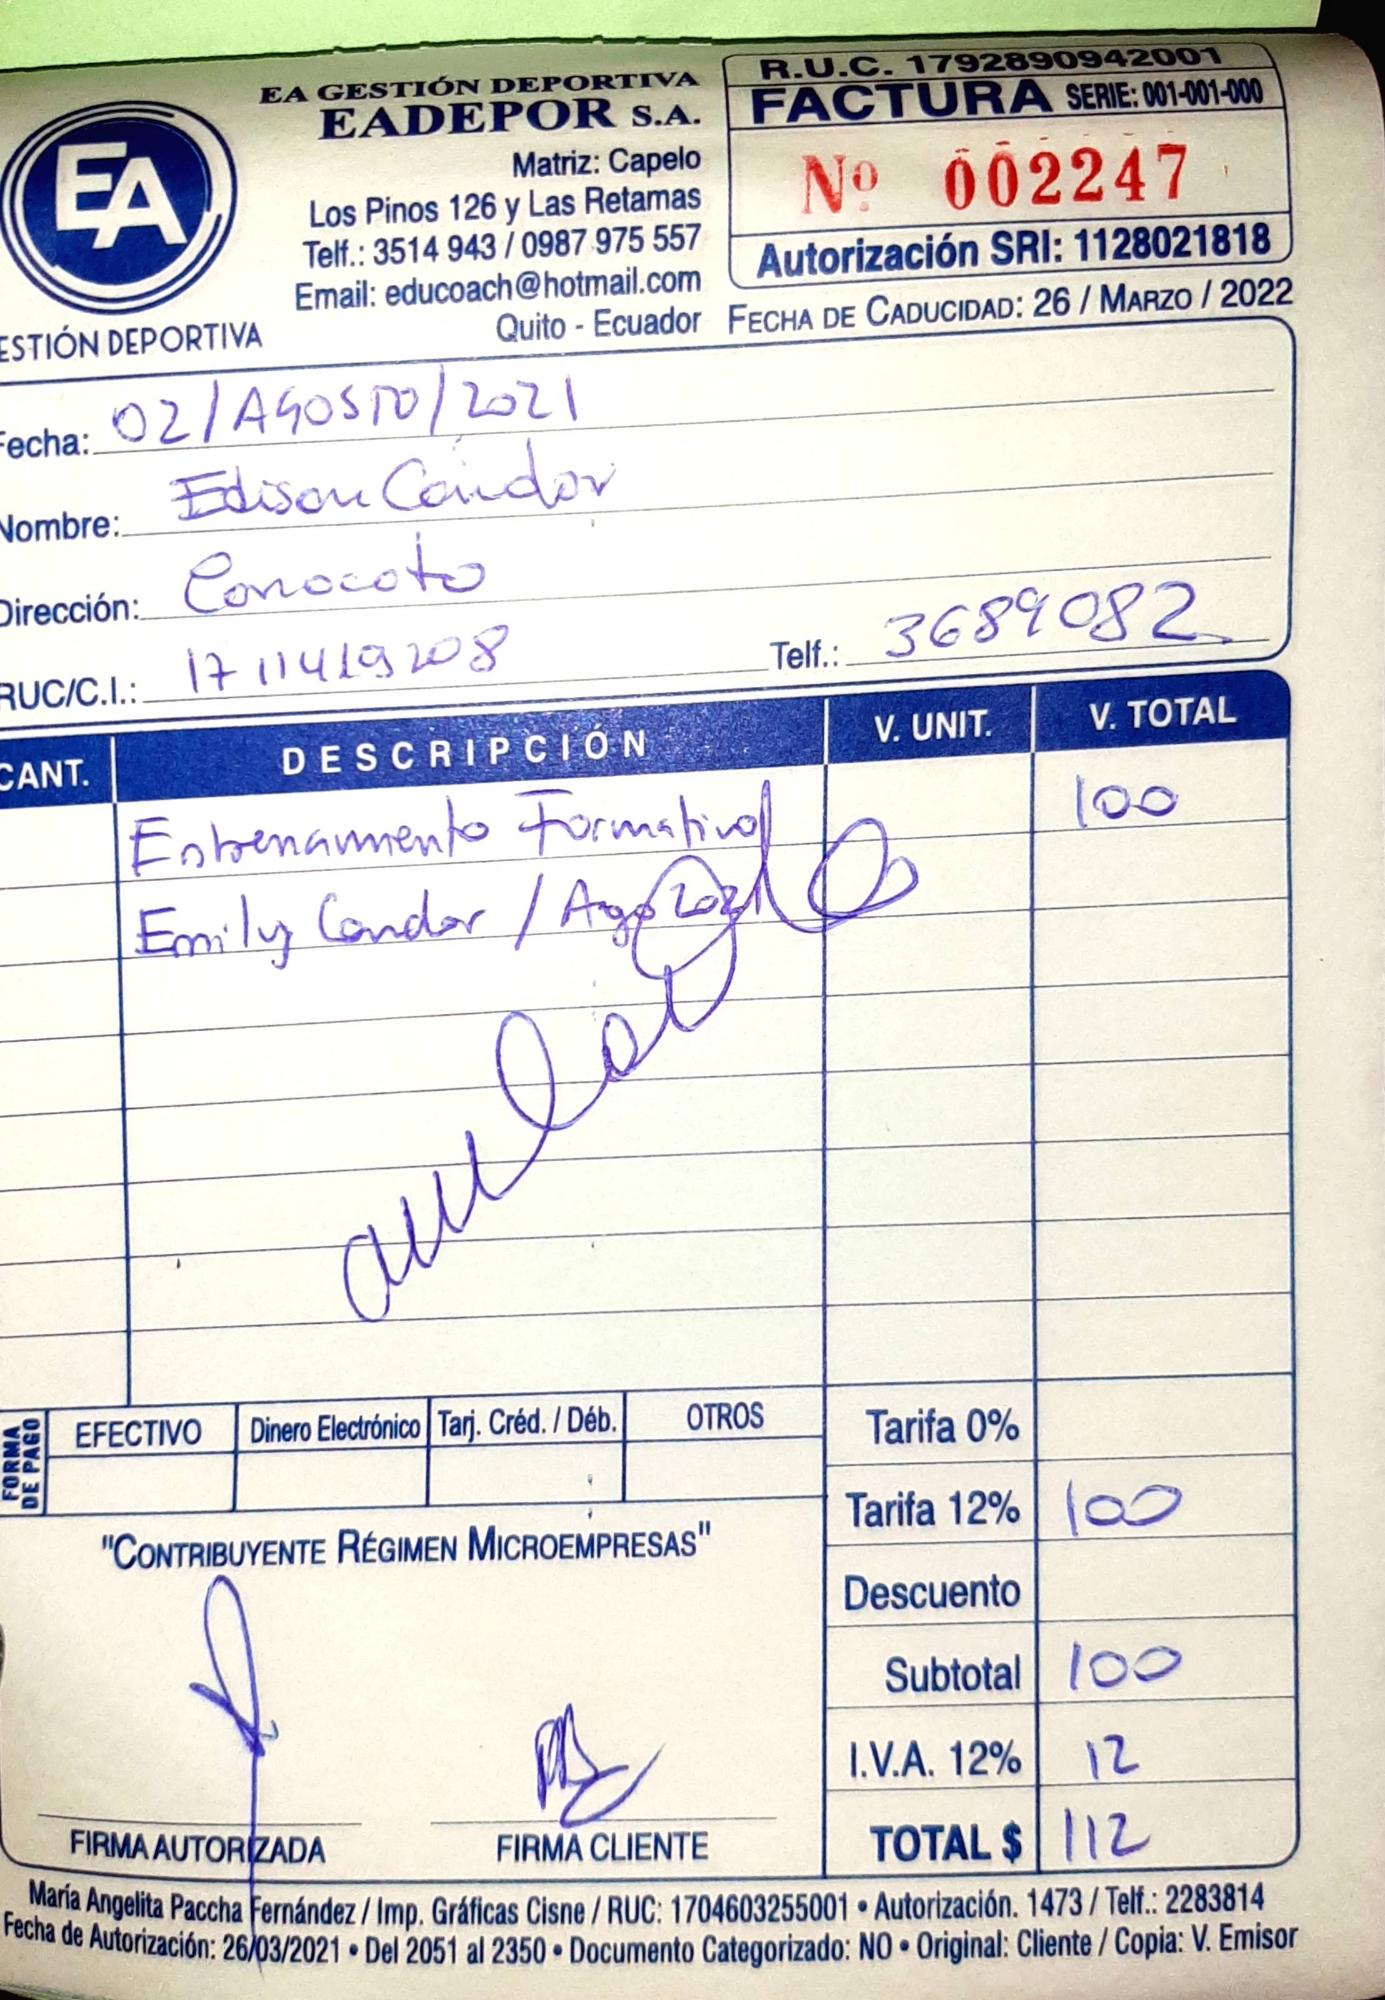 EA GESTIÓN DEPORTIVA
EADEPOR S.A.
Matriz: Capelo
Los Pinos 126 y Las Retamas
Telf.: 3514 943 / 0987 975 557
Email: educoach@hotmail.com
Quito - Ecuador
EA
ESTIÓN DEPORTIVA
R.U.C. 1792890942001
FACTURA SERIE: 001-001-000
Nº 002247
Autorización SRI: 1128021818
FECHA DE CADUCIDAD: 26 / MARZO / 2022
Fecha: 02/AGOSTO/2021
Nombre: Edison Cóndor
Dirección: Conocoto
RUC/C.I.: 1711419208 Telf.: 3689082
CANT. DESCRIPCIÓN V. UNIT. V. TOTAL
Entrenamiento Formativo 100
Emily Condor / Ago 2021
anulado
FORMA DE PAGO
EFECTIVO Dinero Electrónico Tarj. Créd. / Déb. OTROS
Tarifa 0%
Tarifa 12% 100
Descuento
Subtotal 100
I.V.A. 12% 12
TOTAL $ 112
"CONTRIBUYENTE RÉGIMEN MICROEMPRESAS"
FIRMA AUTORIZADA FIRMA CLIENTE
María Angelita Paccha Fernández / Imp. Gráficas Cisne / RUC: 1704603255001 • Autorización. 1473 / Telf.: 2283814
Fecha de Autorización: 26/03/2021 • Del 2051 al 2350 • Documento Categorizado: NO • Original: Cliente / Copia: V. Emisor